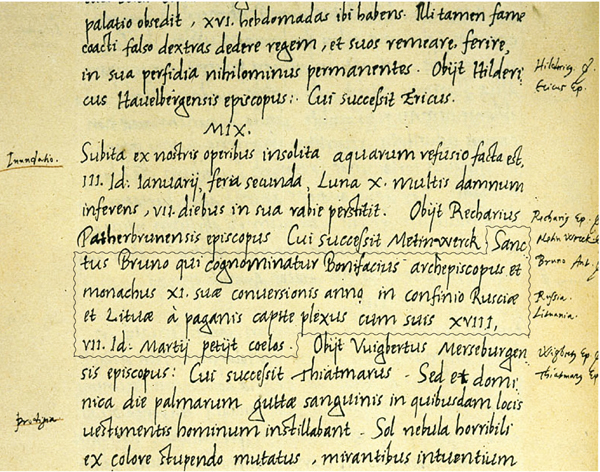 palatio obsedit, XVI. hebdomadas ibi habens. Illi tamen fame
coacti falso dextras dedere regem, et suos remeare, ferire,
in sua perfidia nihilominus permanentes. Obijt Hilderi
cus Hauelbergensis episcopus: Cui successit Ericus.
Hilderic9
Ericus Ep.
MIX.
Inundatio.
Subita ex nostris operibus insolita aquarum refusio facta est,
III. Id: Ianuarij, feria secunda, Luna X. multis damnum
inferens, VII. diebus in sua rabie perstitit. Obijt Recharius
Patherbrunensis episcopus Cui successit Metinwerck Sanc
tus Bruno qui cognominatur Bonifacius archepiscopus et
monachus XI. suæ conversionis anno in confinio Rusciæ
et Lituæ à paganis capite plexus cum suis XVIII,
VII. Id: Martij petijt coelos. Obijt Vuigbertus Merseburgen
Ep.
Bruno
Russia.
Lituania.
sis episcopus: Cui successit Thiatmarus. Sed et domi
nica die palmarum guttæ sanguinis in quibusdam locis
uestimentis hominum instillabant. Sol nebula horribili
ex colore stupendo mutatus, mirantibus intuentium
Ep.
Ep.